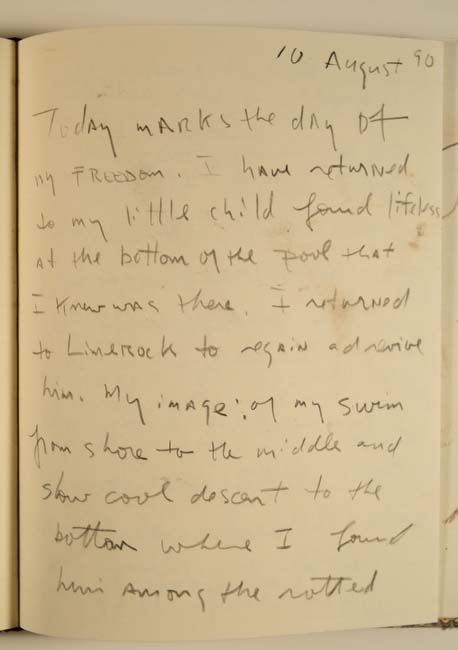 10 August 90
Today marks the day of
my FREEDOM. I have returned
to my little child found lifeless
at the bottom of the pool that
I knew was there. I returned
to Limerock to regain ad revive
him. My image: of my swim
from shore to the middle and
slow cool descent to the
bottom where I found
him among the rotted